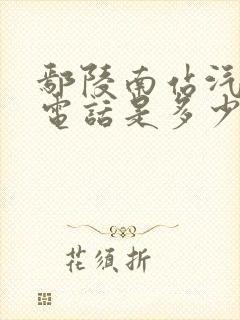 鄢陵南佔汽
電話是多少
花須折